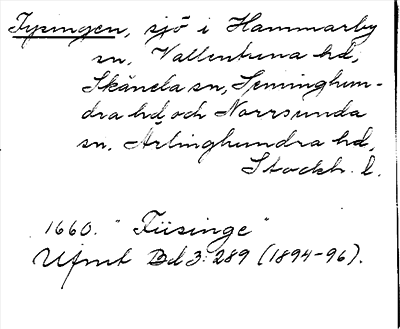 Fysingen, sjö i Hammarby
sn, Vallentuna hd,
Skånela sn, Seminghun-
dra hd och Norrsunda
sn. Ärlinghundra hd,
Stockh. l.
1660. "Fiisinge"
Ufmt Bd 3: 289 (1894-96).